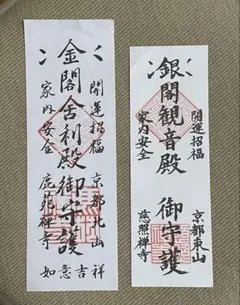 金閣舍利殿御守護
開運招福
家内安全
京都北山
鹿苑禅寺
如意吉祥
銀閣観音殿
御守護
開運招福
家内安全
京都東山
慈照禅寺